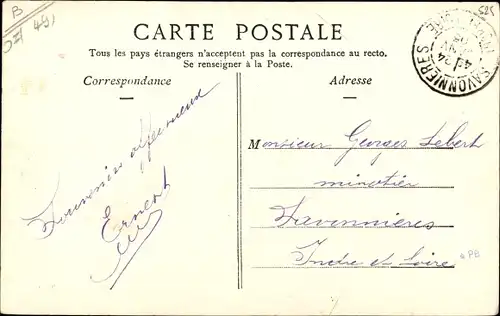 B
491
525
CARTE POSTALE
Tous les pays étrangers n'acceptent pas la correspondance au recto.
Se renseigner à la Poste.
Correspondance
Adresse
SAVONNIERES
24
Souvenirs affectueux
Ernest
Monsieur Georges Lebert
minotier
Savonnières
Indre et Loire
PB